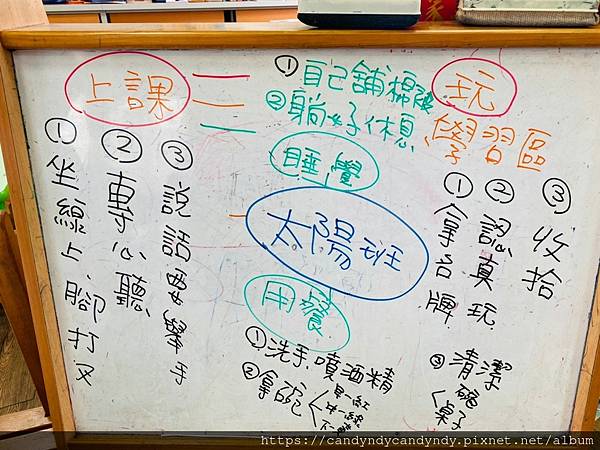 上課
①坐線上、腳打叉
②專心聽
③說話要舉手
①自己鋪棉被
②躺好休息
睡覺
太陽班
用餐
①洗手.噴酒精
②拿碗
早-紅
中-綠
③清潔
碗
桌子
玩
學習區
①拿名牌
②認真玩
③收拾
https://candyndycandyndy.pixnet.net/album